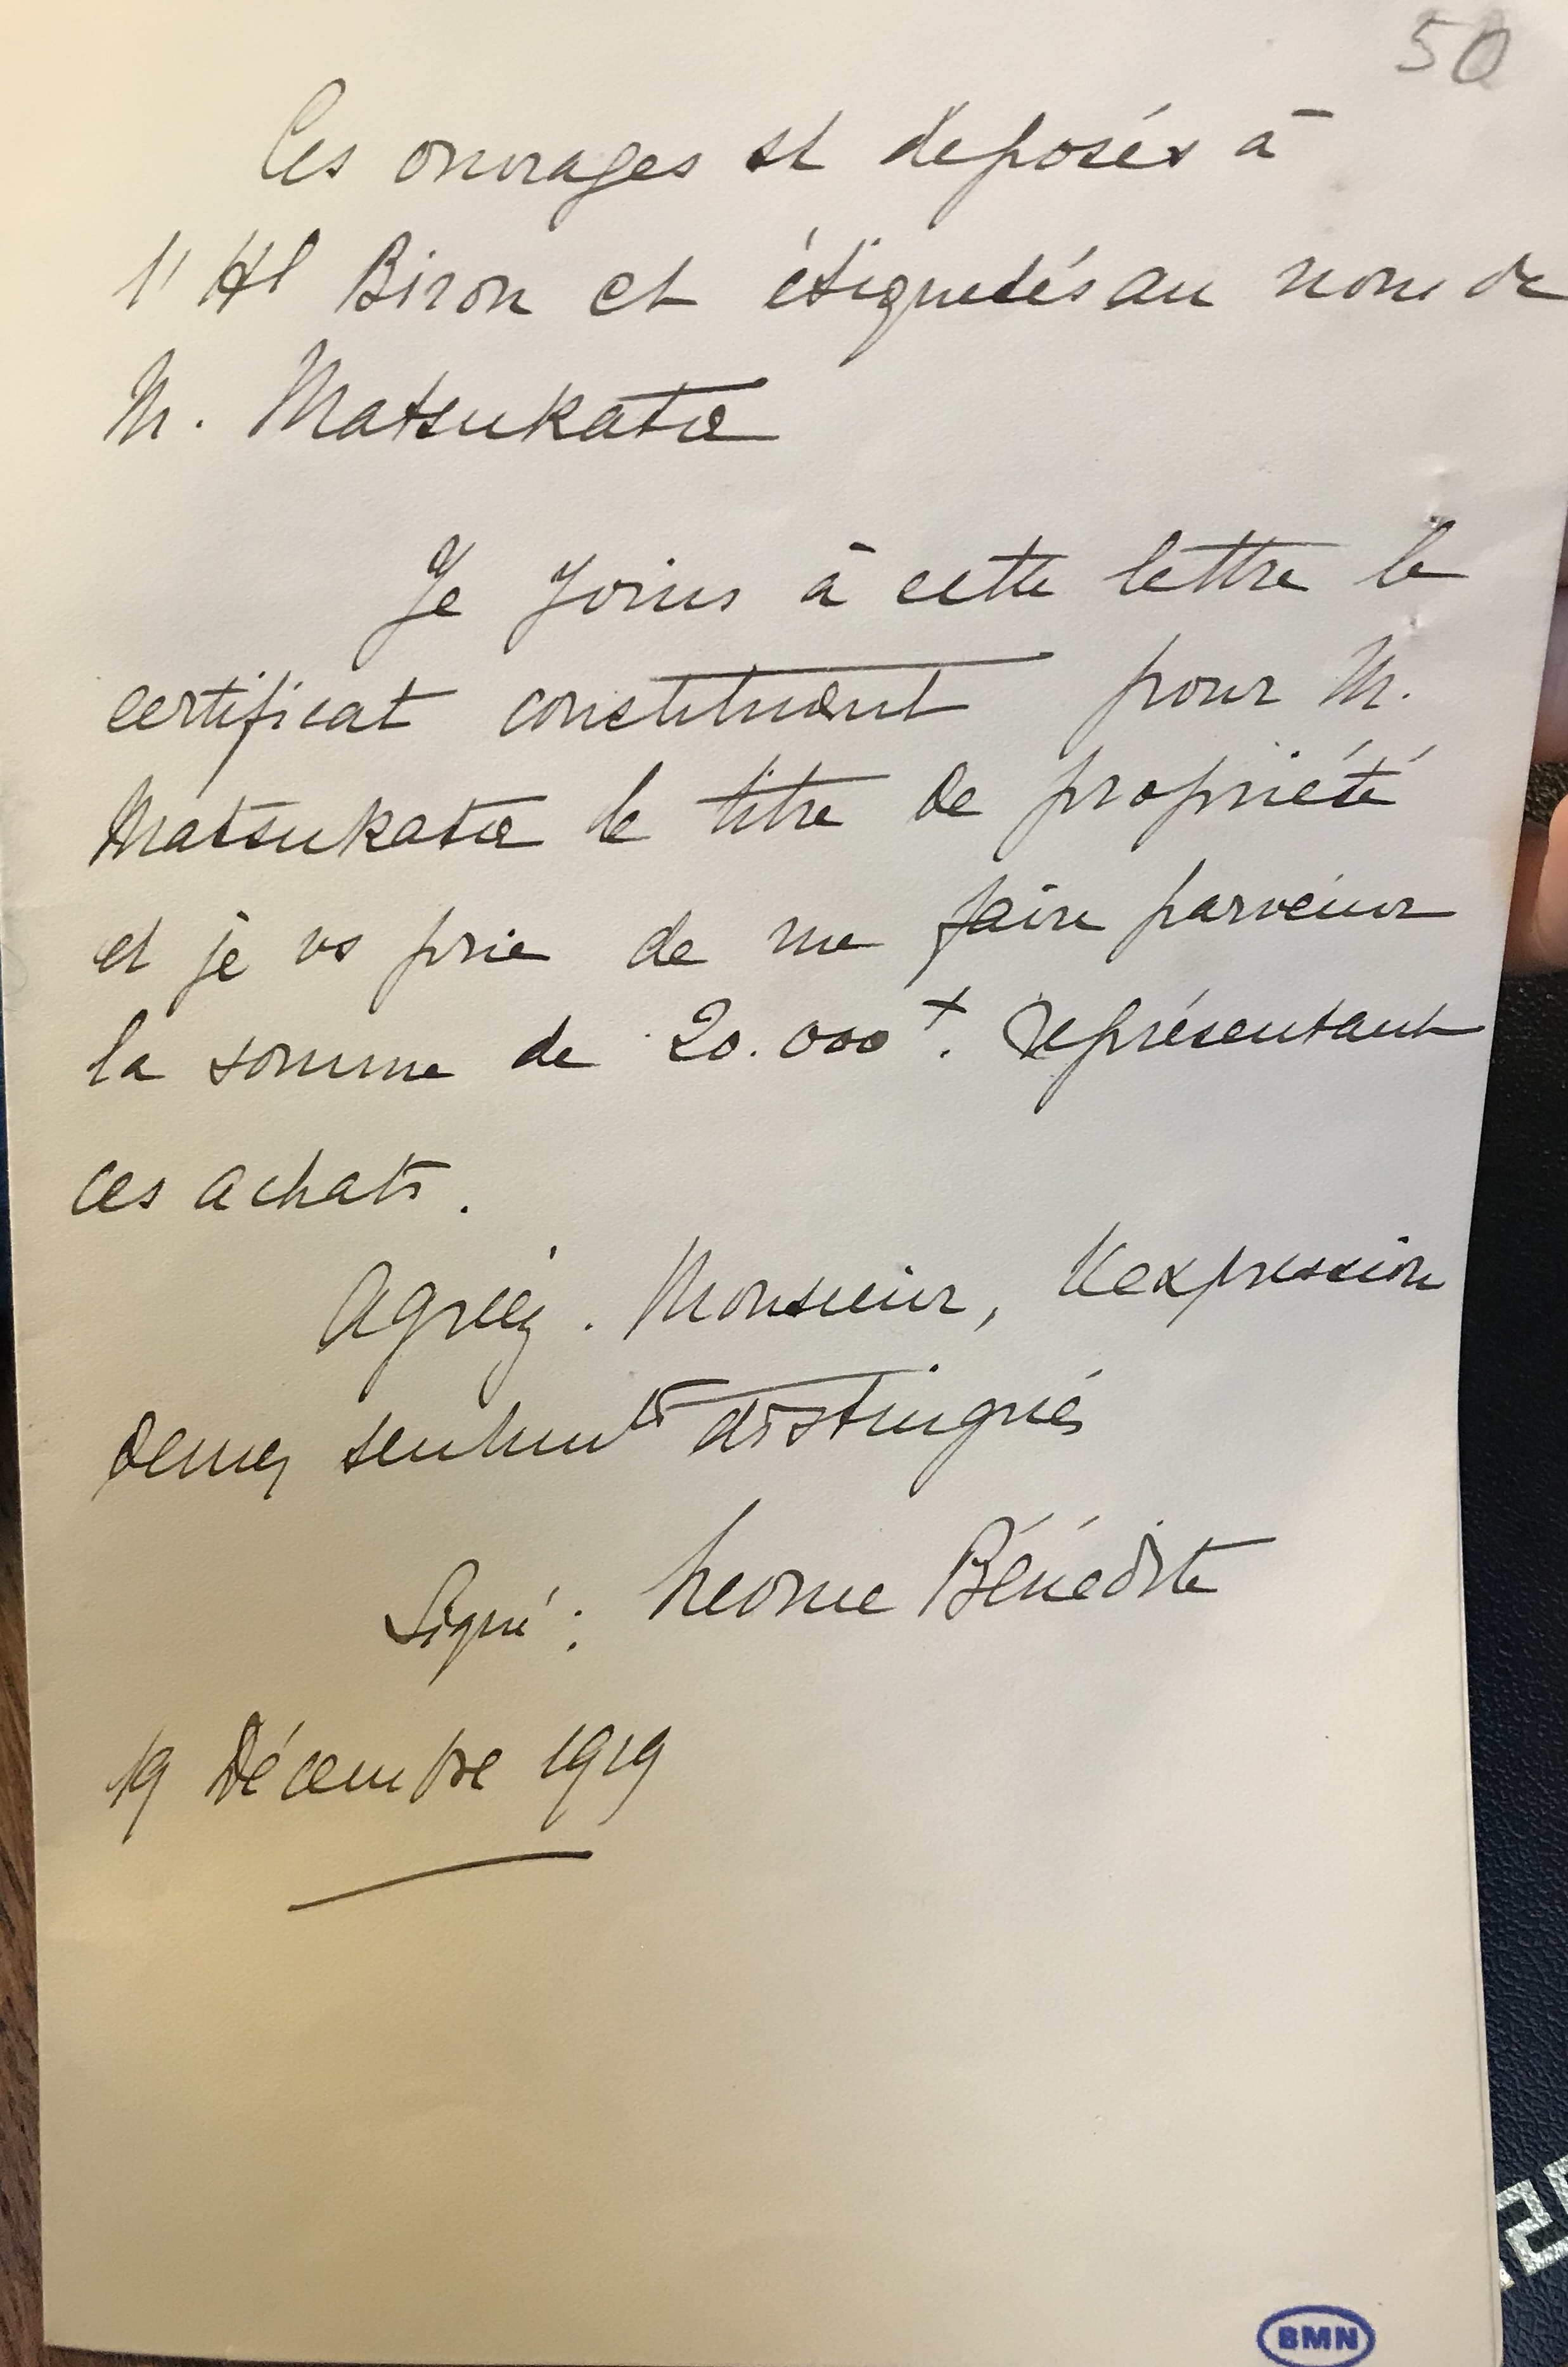 50
Ces ouvrages st déposés à
l'Hl Biron et étiquetés au nom de
M. Matsukata
Je joins à cette lettre le
certificat constituant pour M.
Matsukata le titre de propriété
et je vs prie de me faire parvenir
la somme de 20.000 f. représentant
ces achats.
Agréez. Monsieur, l'expression
de mes sentimts distingués
Signé : Léonce Bénédite
19 Décembre 1919
BMN